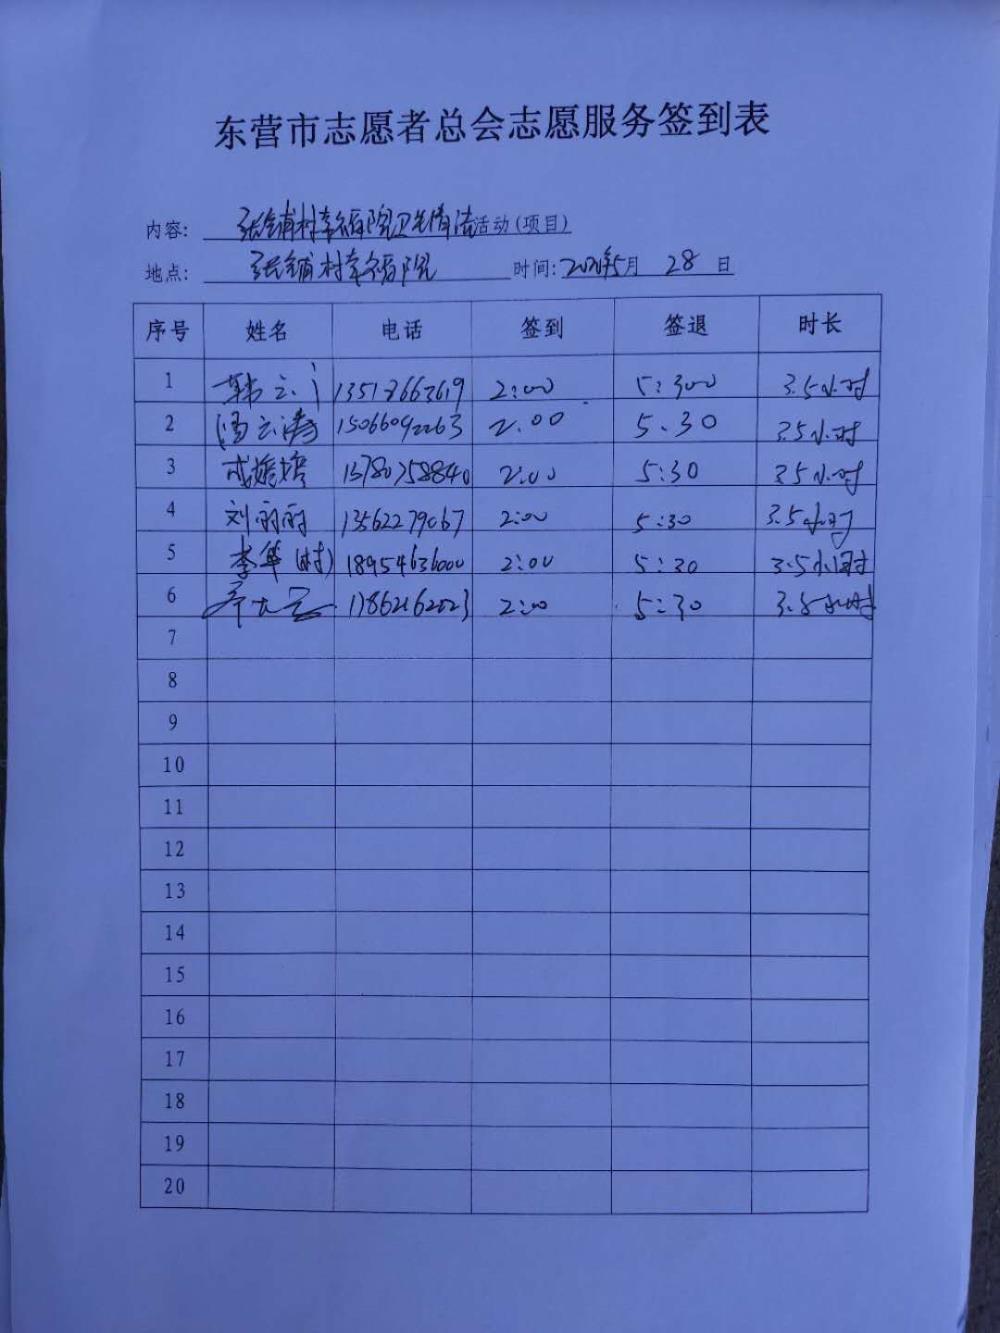 东营市志愿者总会志愿服务签到表
内容: 张铺村幸福院卫生清洁活动(项目)
地点: 张铺村幸福院 时间: 5月 28 日
序号 姓名 电话 签到 签退 时长
1 2:00 5:300 3.5小时
2 15066092263 2.00 5.30 3.5小时
3 13780758840 2:00 5:30 3.5小时
4 刘丽丽 13562279067 2:00 5:30 3.5小时
5 李华(村) 18954636000 2:00 5:30 3.5小时
6 17862162023 2:00 5:30 3.5小时
7
8
9
10
11
12
13
14
15
16
17
18
19
20